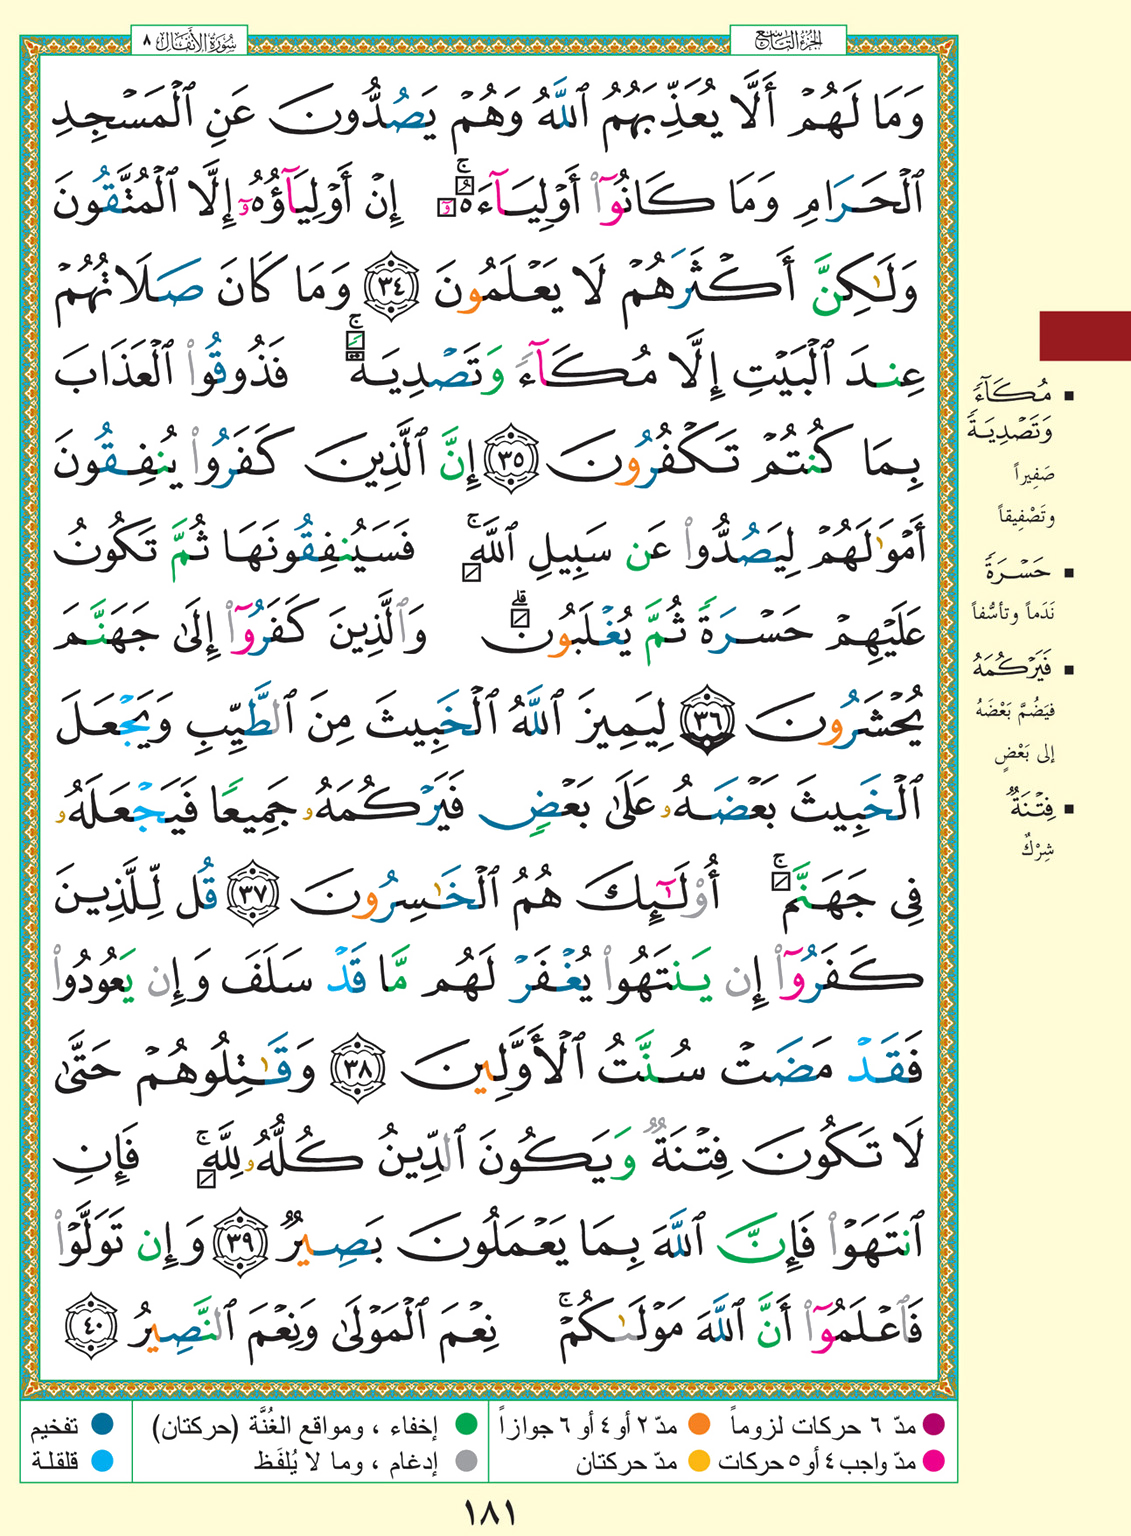 الجزء التاسع
سورة الأنفال ٨
وَمَا لَهُمْ أَلَّا يُعَذِّبَهُمُ ٱللَّهُ وَهُمْ يَصُدُّونَ عَنِ ٱلْمَسْجِدِ
ٱلْحَرَامِ وَمَا كَانُوٓا۟ أَوْلِيَآءَهُۥٓ ۚ إِنْ أَوْلِيَآؤُهُۥٓ إِلَّا ٱلْمُتَّقُونَ
وَلَٰكِنَّ أَكْثَرَهُمْ لَا يَعْلَمُونَ ٣٤ وَمَا كَانَ صَلَاتُهُمْ
عِندَ ٱلْبَيْتِ إِلَّا مُكَآءً وَتَصْدِيَةً ۚ فَذُوقُوا۟ ٱلْعَذَابَ
بِمَا كُنتُمْ تَكْفُرُونَ ٣٥ إِنَّ ٱلَّذِينَ كَفَرُوا۟ يُنفِقُونَ
أَمْوَٰلَهُمْ لِيَصُدُّوا۟ عَن سَبِيلِ ٱللَّهِ ۚ فَسَيُنفِقُونَهَا ثُمَّ تَكُونُ
عَلَيْهِمْ حَسْرَةً ثُمَّ يُغْلَبُونَ ۗ وَٱلَّذِينَ كَفَرُوٓا۟ إِلَىٰ جَهَنَّمَ
يُحْشَرُونَ ٣٦ لِيَمِيزَ ٱللَّهُ ٱلْخَبِيثَ مِنَ ٱلطَّيِّبِ وَيَجْعَلَ
ٱلْخَبِيثَ بَعْضَهُۥ عَلَىٰ بَعْضٍ فَيَرْكُمَهُۥ جَمِيعًا فَيَجْعَلَهُۥ
فِى جَهَنَّمَ ۚ أُو۟لَٰٓئِكَ هُمُ ٱلْخَٰسِرُونَ ٣٧ قُل لِّلَّذِينَ
كَفَرُوٓا۟ إِن يَنتَهُوا۟ يُغْفَرْ لَهُم مَّا قَدْ سَلَفَ وَإِن يَعُودُوا۟
فَقَدْ مَضَتْ سُنَّتُ ٱلْأَوَّلِينَ ٣٨ وَقَٰتِلُوهُمْ حَتَّىٰ
لَا تَكُونَ فِتْنَةٌ وَيَكُونَ ٱلدِّينُ كُلُّهُۥ لِلَّهِ ۚ فَإِنِ
ٱنتَهَوْا۟ فَإِنَّ ٱللَّهَ بِمَا يَعْمَلُونَ بَصِيرٌ ٣٩ وَإِن تَوَلَّوْا۟
فَٱعْلَمُوٓا۟ أَنَّ ٱللَّهَ مَوْلَىٰكُمْ ۚ نِعْمَ ٱلْمَوْلَىٰ وَنِعْمَ ٱلنَّصِيرُ ٤٠
▪ مُكَآءً
وَتَصْدِيَةً
صَفِيراً
وتَصْفِيقاً
▪ حَسْرَةً
نَدَماً وتأسُّفاً
▪ فَيَرْكُمَهُ
فيَضُمَّ بَعْضَهُ
إلى بَعْضٍ
▪ فِتْنَةٌ
شِرْكٌ
مدّ ٦ حركات لزوماً مدّ ٢ أو ٤ أو ٦ جوازاً
مدّ واجب ٤ أو ٥ حركات مدّ حركتان
إخفاء ، ومواقع الغُنَّة (حركتان)
إدغام ، وما لا يُلفَظ
تفخيم
قلقلة
١٨١